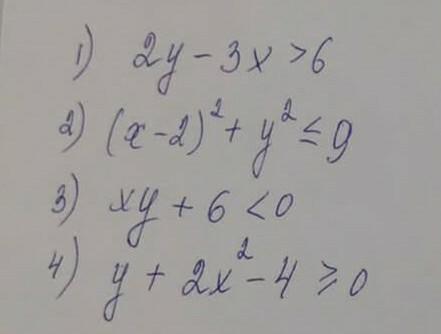 1) 2y - 3x > 6
2) (x - 2)² + y² ≤ 9
3) xy + 6 < 0
4) y + 2x² - 4 ≥ 0